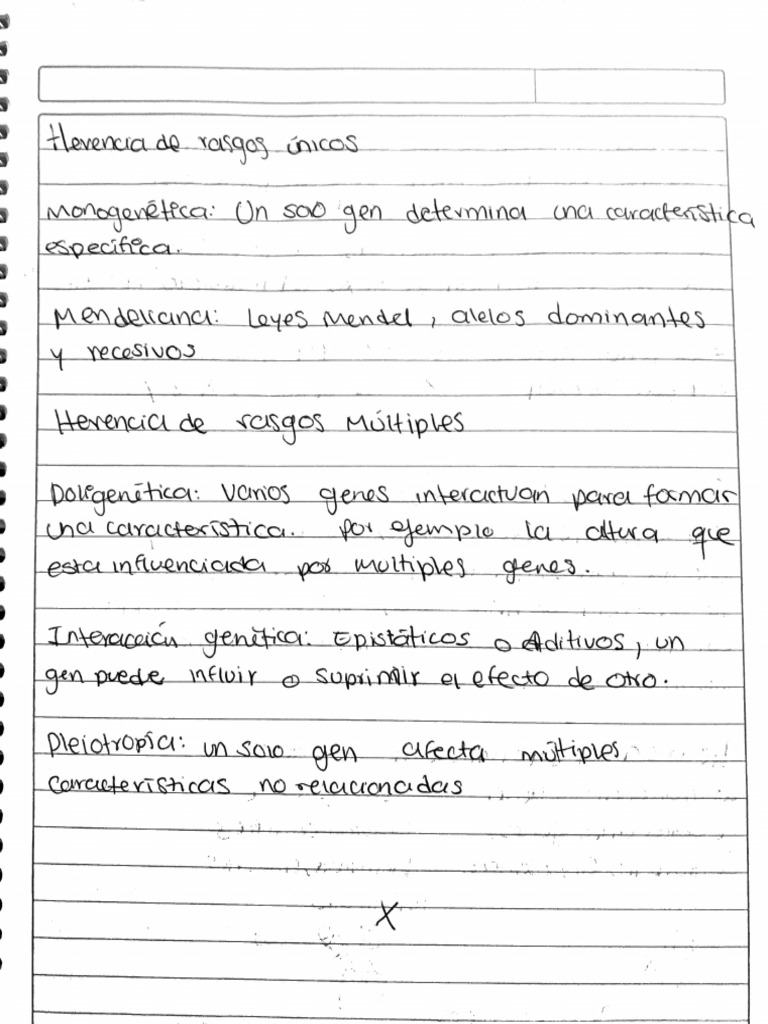 Herencia de rasgos únicos
Monogenética: Un solo gen determina una característica
específica.
Mendeliana: Leyes Mendel, alelos dominantes
y recesivos
Herencia de rasgos Múltiples
Poligenética: Varios genes interactuan para formar
una característica. Por ejemplo la altura que
esta influenciada por multiples genes.
Interacción genética: Epistáticos o Aditivos, un
gen puede influir o suprimir el efecto de otro.
Pleiotropía: un solo gen afecta múltiples
características no relacionadas
X